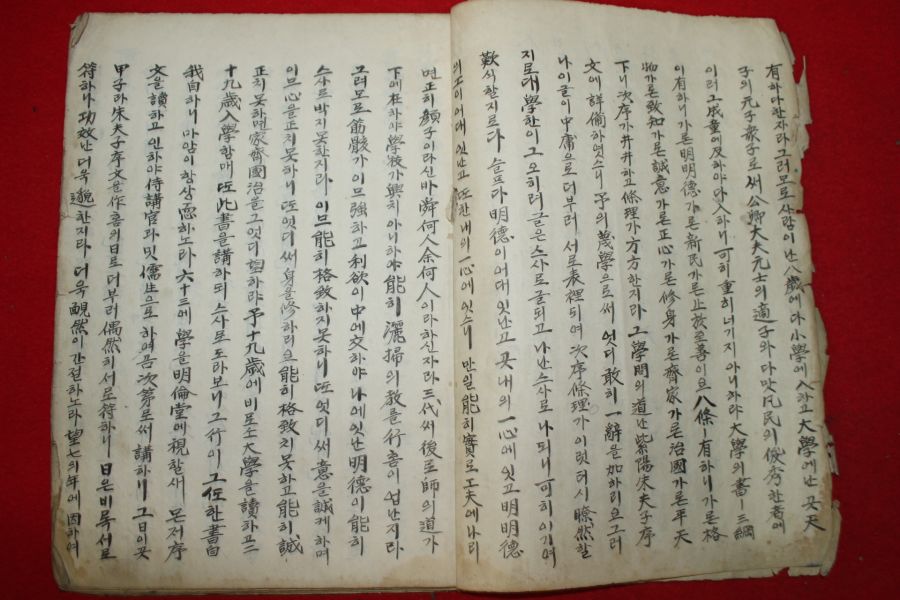 有하다한자라그러모로사람이난八歲에다小學에入하고大學에난곳天
子의元子衆子로써公卿大夫元士의適子와다맛凡民의俊秀한者에
이러그成童에及하야다入하니可히重히너기지아니하랴大學의書ㅣ三綱
이有하니가론明明德가론新民가론止於至善이오八條ㅣ有하니가론格
物가론致知가론誠意가론正心가론修身가론齊家가론治國가론平天
下니次序가井井하고條理가方方한지라그學問의道난紫陽朱夫子序
文에詳備하엿스니予의蔑學으로써엇디敢히一辭을加하리오그러
나이글이中庸으로더부러서로表裡되여次序條理가이럿터시瞭然할
지로대學한이그오히려글은스사로글되고나난스사로나되니可히이긔여
歎식할지로다슬프다明德이어대잇난고곳내의一心에잇고明明德
의工이어대잇난고ᄯᅩ한내의一心에잇스니만일能히實로工夫에나리
면正히顔子이라신바舜何人余何人이라하신자라三代써後로師의道가
下에在하야學校가興치아니하야能히灑掃의敎를行홈이업난지라
그려모로筋骸가이므强하고利欲이中에交하야나에잇난明德이能히
스사로박지못한지라이므能히格致하지못하니ᄯᅩ엇디써意을誠케하며
이므心을正치못하니ᄯᅩ엇디써身을修하리오能히格致치못하고能히誠
正치못하면家齊國治을그엇디望하랴予十九歲에비로소大學을讀하고二
十九歲入學함애ᄯᅩ此書을講하되스사로도라보니그行이그任한書自
我自하니마암이항상恧하노라六十三에學을明倫堂에視할새몬저序
文을讀하고인하야侍講官과밋儒生으로하여곰次第로써講하니그日이곳
甲子라朱夫子序文을作홈의日로더부러偶然히서로符하니日은비록서로
符하나功效난더옥邈한지라더옥靦然이간절하노라望七의年에因하여